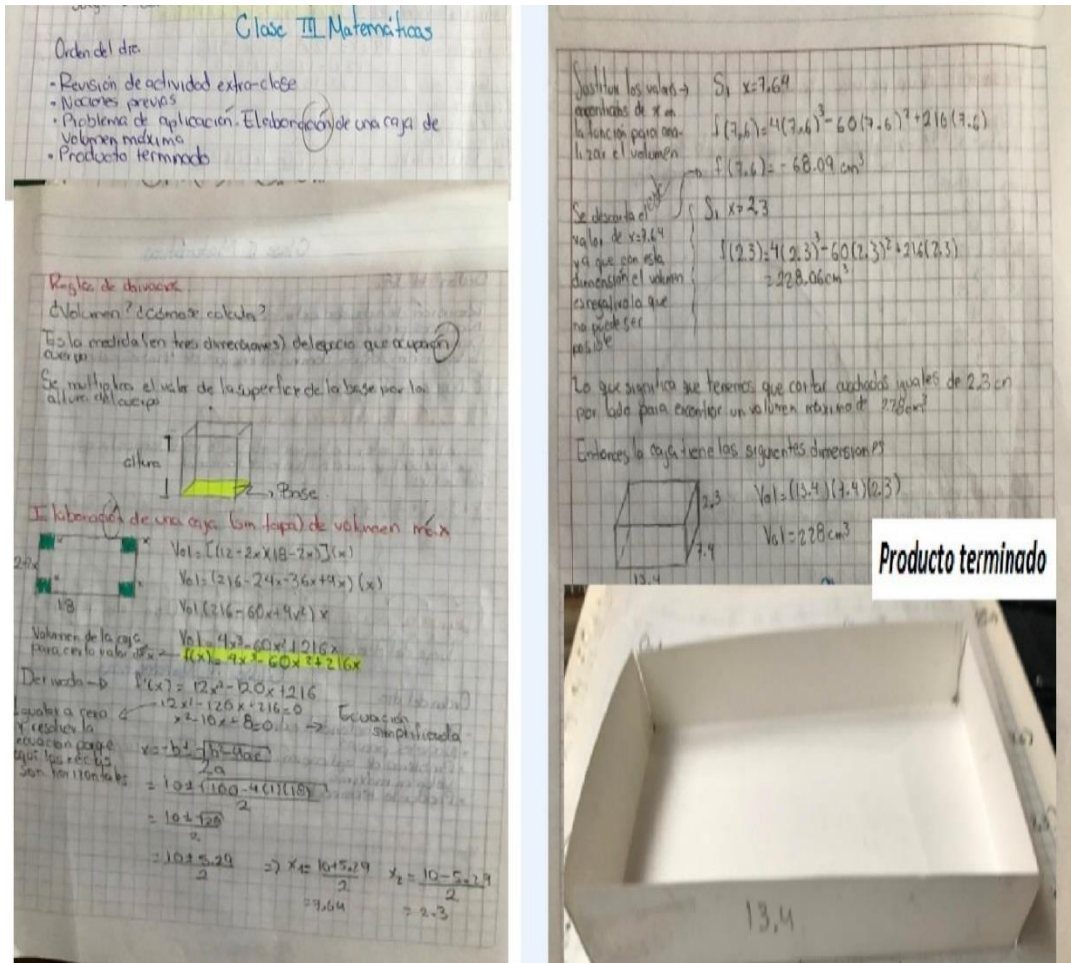 Clase III Matemáticas
Orden del dia.
• Revisión de actividad extra-clase
• Nociones previas
• Problema de aplicación. Elaboración de una caja de
volumen máximo
• Producto terminado
Reglas de derivación
¿Volumen? ¿cómo se calcula?
Es la medida (en tres dimensiones) del espacio que ocupa un
cuerpo
Se multiplica el valor de la superficie de la base por la
altura del cuerpo
altura
Base
Elaboración de una caja (sin tapa) de volumen máx
x
x
18
Vol = [(12-2x)(18-2x)](x)
Vol = (216-24x-36x+4x)(x)
Vol (216-60x+4x²) x
Vol = 4x³-60x²+216x
Volumen de la caja
para cierto valor de x
f(x) = 4x³-60x²+216x
Derivada → f'(x) = 12x²-120x+216
12x²-120x+216=0
x²-10x+8=0 → Ecuación
simplificada
Igualar a cero
y resolver la
ecuación porque
aquí las rectas
son horizontales
x = -b±√b²-4ac
2a
= 10±√100-4(1)(18)
2
= 10±√28
2
= 10±5.29
2
=> x₁= 10+5.29
2
= 7.64
x₂ = 10-5.29
2
= 2.3
Sustituir los valores →
encontrados de x en
la función para ana-
lizar el volumen
Si x=7.64
f(7.6)=4(7.6)³-60(7.6)²+216(7.6)
f(7.6)=-68.09 cm³
Se descarta el
valor de x=7.64
ya que con esta
dimensión el volumen
es negativo lo que
no puede ser
posible
Si x=2.3
f(2.3)=4(2.3)³-60(2.3)²+216(2.3)
=228.06cm³
Lo que significa que tenemos que cortar cuadrados iguales de 2.3 cm
por lado para encontrar un volumen máximo de 228cm³
Entonces, la caja tiene las siguientes dimensiones
2.3
7.4
13.4
Vol=(13.4)(7.4)(2.3)
Vol=228cm³
Producto terminado
13.4